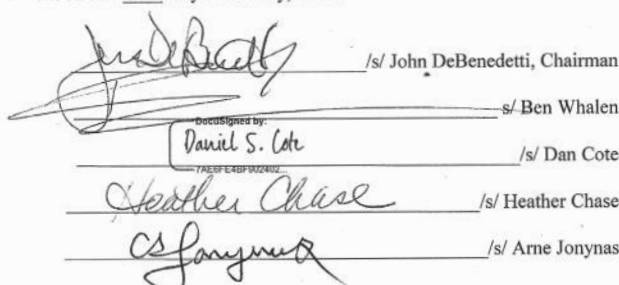 /s/ John DeBenedetti, Chairman
s/ Ben Whalen
DocuSigned by:
Daniel S. Cote
/s/ Dan Cote
7AE6FE4BF902402...
Heather Chase /s/ Heather Chase
/s/ Arne Jonynas